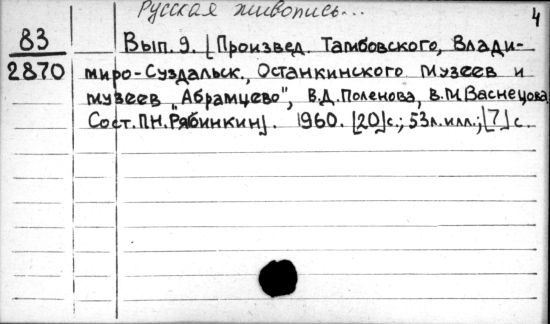 Русская живопись...
4
83
2870
Вып. 9. [Произвед. Тамбовского, Влади-
миро-Суздальск., Останкинского музеев и
музеев „Абрамцево", В.Д.Поленова, В.М.Васнецова
Сост. П.Н.Рябинкин]. 1960. [20]с.; 53л.илл.; [7]с.